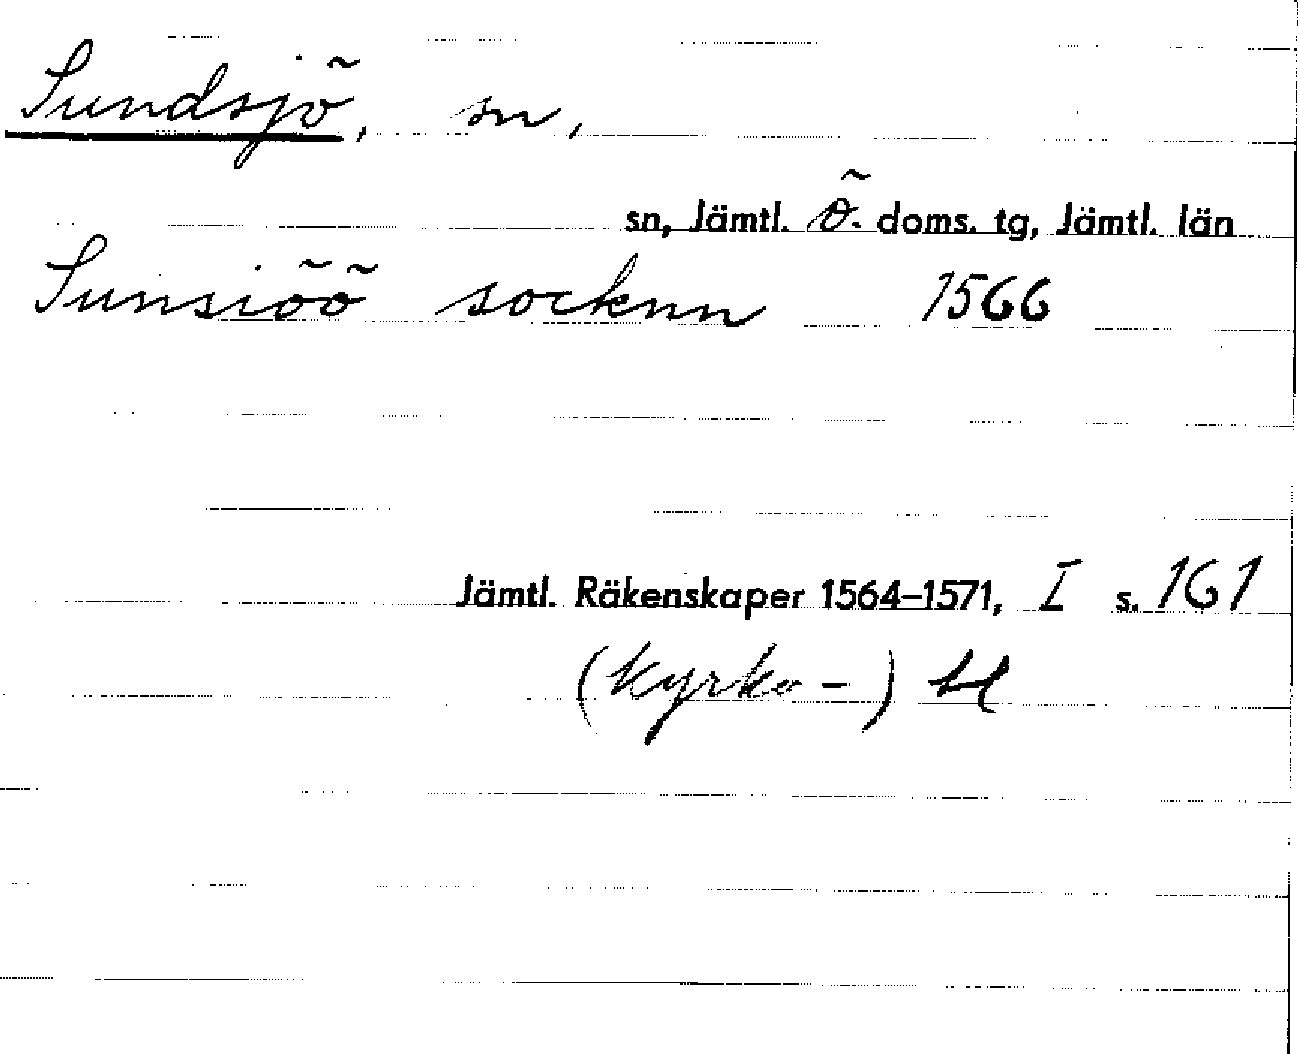 Sundsjö, sn,
sn, Jämtl. Ö. doms. tg, Jämtl. län
Sunsiöö socknn 1566
Jämtl. Räkenskaper 1564–1571, I s. 161
(Kyrko-)